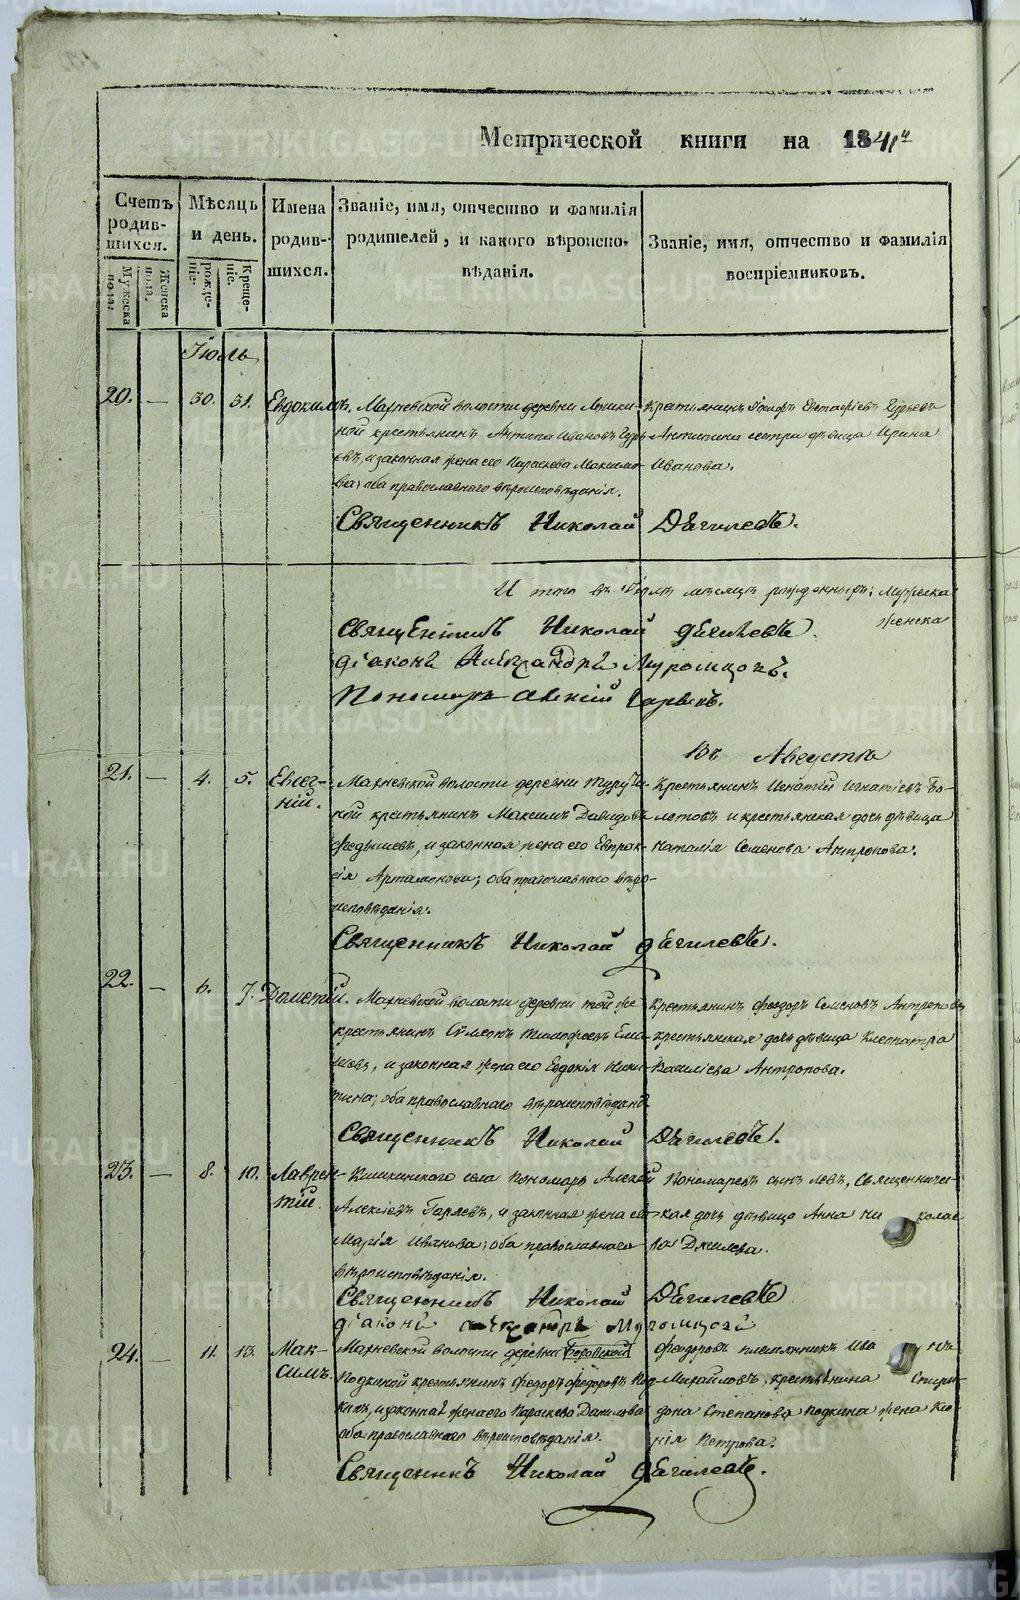 Метрической книги на 1841й
Счетъ родив-шихся.
Мужеска пола.
Женска пола.
Мѣсяцъ и день.
рожде-ніе.
Креще-ніе.
Имена родив-шихся.
Званіе, имя, отчество и фамилія
родителей, и какого вѣроиспо-
вѣданія.
Званіе, имя, отчество и фамилія
воспріемниковъ.
Іюль
20. — 30. 31. Евдокимъ. Махневской волости деревни
ной крестьянинъ Антипа Ивановъ Гурь-
евъ, и законная жена его Параскева Максимо-
ва; оба православнаго вѣроисповѣданія.
Крестьянинъ Евстафіевъ Гурьевъ
Антипина сестра дѣвица Ирина
Иванова.
Священникъ Николай Дягилевъ.
И того въ Іюлѣ мѣсяцѣ рожденныхъ: мужеска
женска
Священникъ Николай Дягилевъ.
діаконъ Александръ Муромцовъ.
Пономарь Алексій Гаряевъ.
Въ Августѣ
21. — 4. 5. Евсег-
ній.
Махневской волости деревни
кой крестьянинъ Максимъ Давидовъ
Ѳедышевъ, и законная жена его Евпрак-
сія Артамонова; оба православнаго вѣро-
исповѣданія.
Крестьянинъ Игнатій Игнатіевъ Бо-
лотовъ и крестьянская дочь дѣвица
Наталія Семенова Антропова.
Священникъ Николай Дягилевъ.
22. — 6. 7. Дометій. Махневской волости деревни той же
крестьянинъ Сѵмеонъ Тимофеевъ
и законная жена его Евдокія Ники-
тина; оба православнаго вѣроисповѣданія
крестьянинъ Ѳеодоръ Семеновъ Антроповъ
крестьянская дочь дѣвица Клеопатра
Василіева Антропова.
Священникъ Николай Дягилевъ.
23. — 8. 10. Лаврен-
тій.
Кишкинского села пономарь Алексій
Алексіевъ Гаряевъ, и законная жена его
Марія Иванова; оба православнаго
вѣроисповѣданія.
Пономаревъ сынъ Левъ, Священниче-
ская дочь дѣвица Анна Николае
ва Дягилева.
Священникъ Николай Дягилевъ
діаконъ Александръ Муромцовъ
24. — 11. 13. Мак-
симъ.
Махневской волости деревни Боровской
Подкиной крестьянинъ Ѳедоръ Ѳедоровъ Под
кинъ, и законная жена его Параскева Данилова
оба православнаго вѣроисповѣданія.
Ѳеодоровъ племянникъ Иванъ
Михайловъ, крестьянина Спири-
дона Степанова Подкина жена
нія Петрова.
Священникъ Николай Дягилевъ.
METRIKI.GASO-URAL.RU